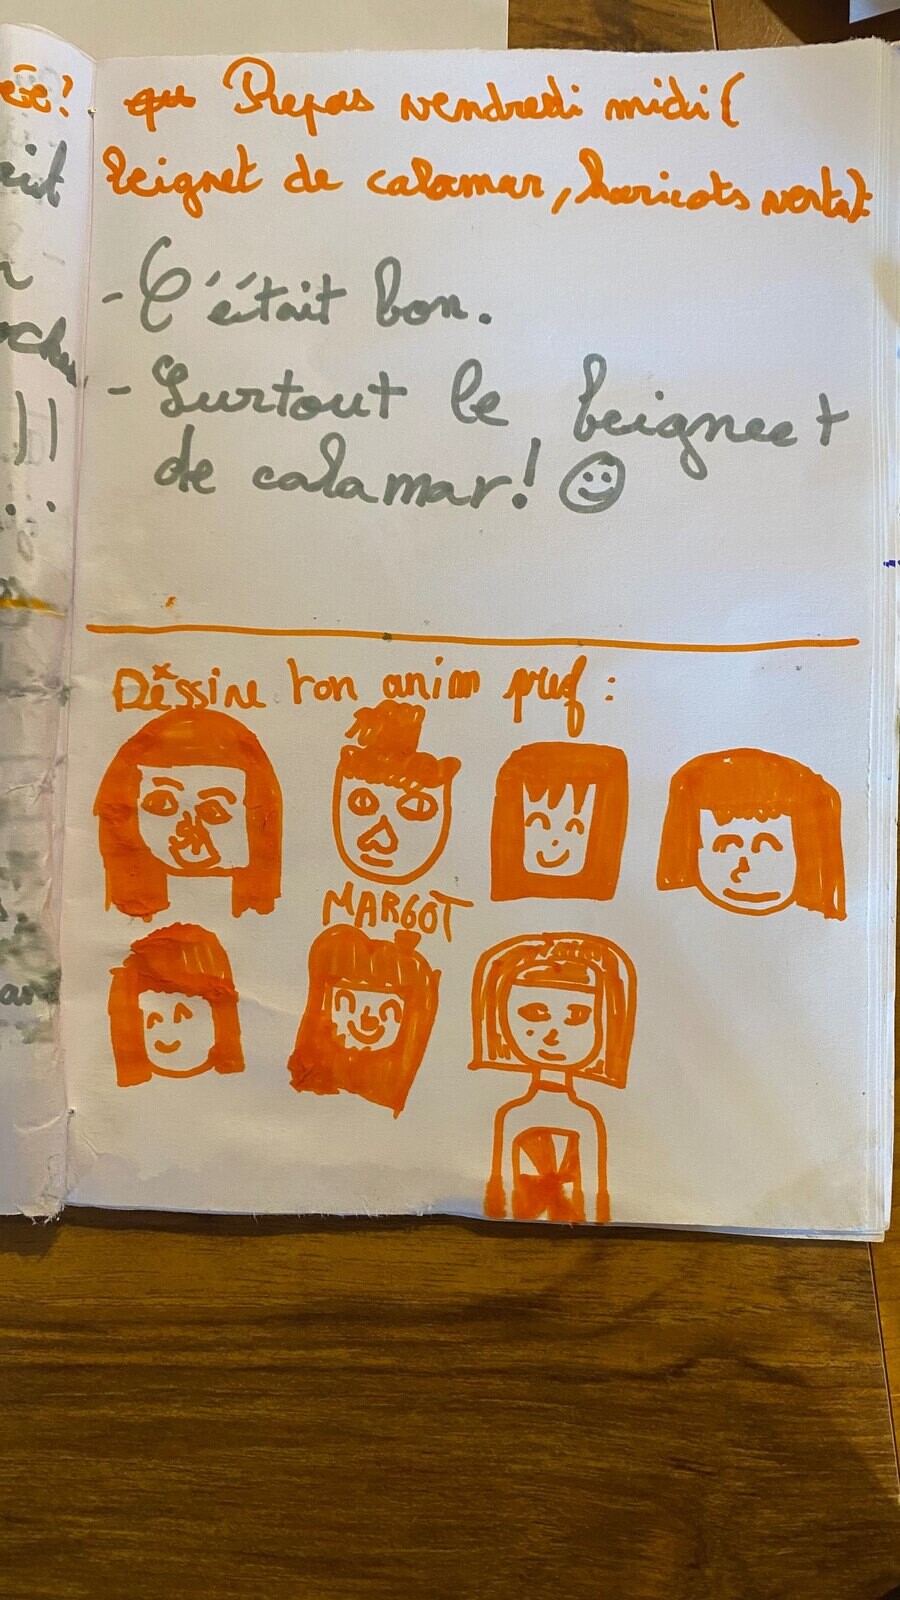 Repas vendredi midi (
beignet de calamar, haricots verts):
- C'était bon.
- Surtout le beigneet
de calamar!
Dessine ton anim pref :
MARGOT